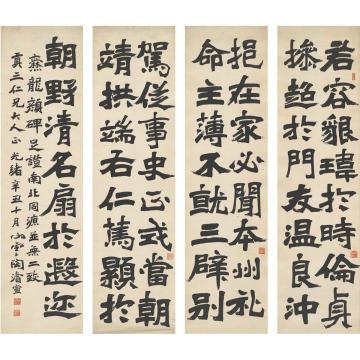 若容貌瑋於時倫貞
操超於門友溫良沖
挹在家必聞本州礼
命主薄不就三辟別
駕從事史正式當朝
靖拱端右仁篤顯於
朝野清名扇於遐迩
爨龍顏碑足證南北同源並無二致
貢三仁兄大人正 光緒辛丑十月 心雲陶濬宣